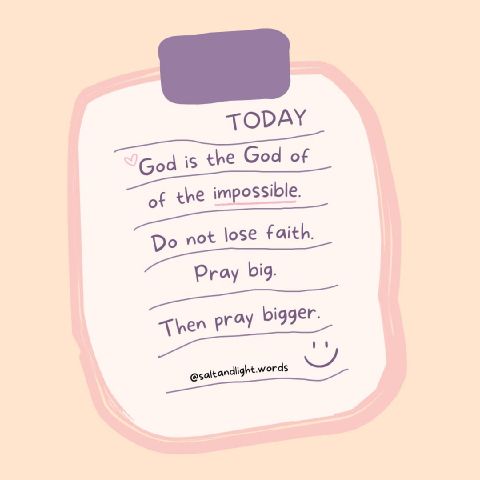 TODAY
God is the God of
of the impossible.
Do not lose faith.
Pray big.
Then pray bigger.
@saltandlight.words